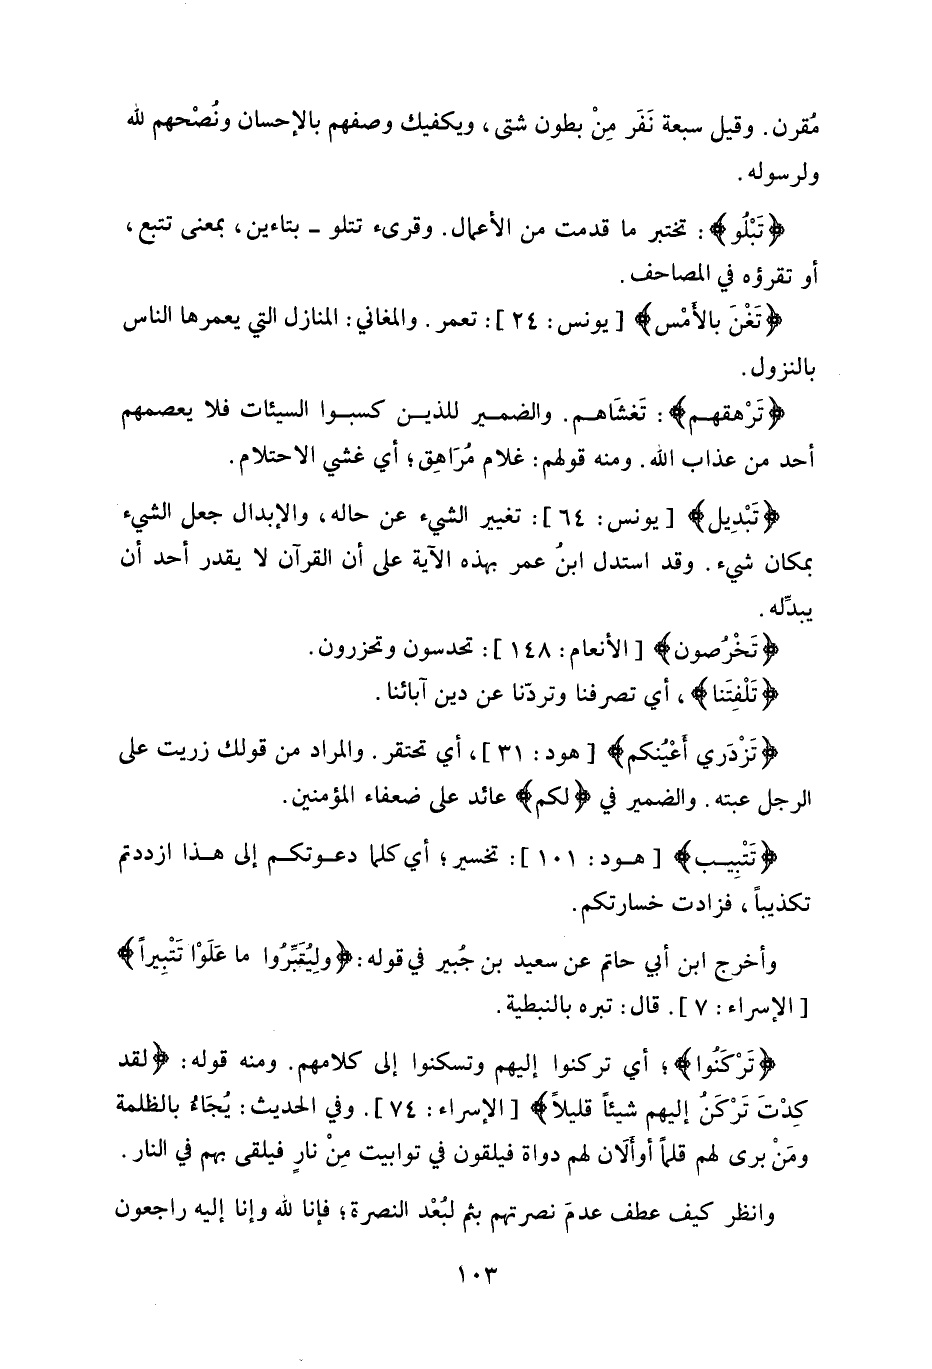 مُقرن. وقيل سبعة نَفَر مِنْ بطون شتى، ويكفيك وصفهم بالإحسان ونُصْحهم لله
ولرسوله.
﴿تَبْلُو﴾: تختبر ما قدمت من الأعمال. وقرىء تتلو - بتاءين، بمعنى تتبع،
أو تقرؤه في المصاحف.
﴿تَغْنَ بالأَمْس﴾ [يونس: ٢٤]: تعمر. والمغاني: المنازل التي يعمرها الناس
بالنزول.
﴿تَرْهقهم﴾: تَغشَاهم. والضمير للذين كسبوا السيئات فلا يعصمهم
أحد من عذاب الله. ومنه قولهم: غلام مُرَاهِق؛ أي غشي الاحتلام.
﴿تَبْدِيل﴾ [يونس: ٦٤]: تغيير الشيء عن حاله، والإبدال جعل الشيء
بمكان شيء. وقد استدل ابنُ عمر بهذه الآية على أن القرآن لا يقدر أحد أن
يبدِّله.
﴿تَخْرُصون﴾ [الأنعام: ١٤٨]: تحدسون وتحزرون.
﴿تَلْفِتَنا﴾، أي تصرفنا وتردّنا عن دين آبائنا.
﴿تَزْدَري أَعْيُنكم﴾ [هود: ٣١]، أي تحتقر. والمراد من قولك زريت على
الرجل عبته. والضمير في ﴿لكم﴾ عائد على ضعفاء المؤمنين.
﴿تَتْبِيب﴾ [هود: ١٠١]: تخسير؛ أي كلما دعوتكم إلى هذا ازددتم
تكذيباً، فزادت خسارتكم.
وأخرج ابن أبي حاتم عن سعيد بن جُبير في قوله: ﴿وليُتَبِّرُوا ما عَلَوْا تَتْبِيراً﴾
[الإسراء: ٧]. قال: تبره بالنبطية.
﴿تَرْكَنُوا﴾؛ أي تركنوا إليهم وتسكنوا إلى كلامهم. ومنه قوله: ﴿لقد
كِدْتَ تَرْكَنُ إليهم شيئاً قليلاً﴾ [الإسراء: ٧٤]. وفي الحديث: يُجَاءُ بالظلمة
ومَنْ برى لهم قلماً أو أَلَان لهم دواة فيلقون في توابيت مِنْ نارٍ فيلقى بهم في النار.
وانظر كيف عطف عدمَ نصرتهم بثم لبُعْد النصرة؛ فإنا لله وإنا إليه راجعون
١٠٣